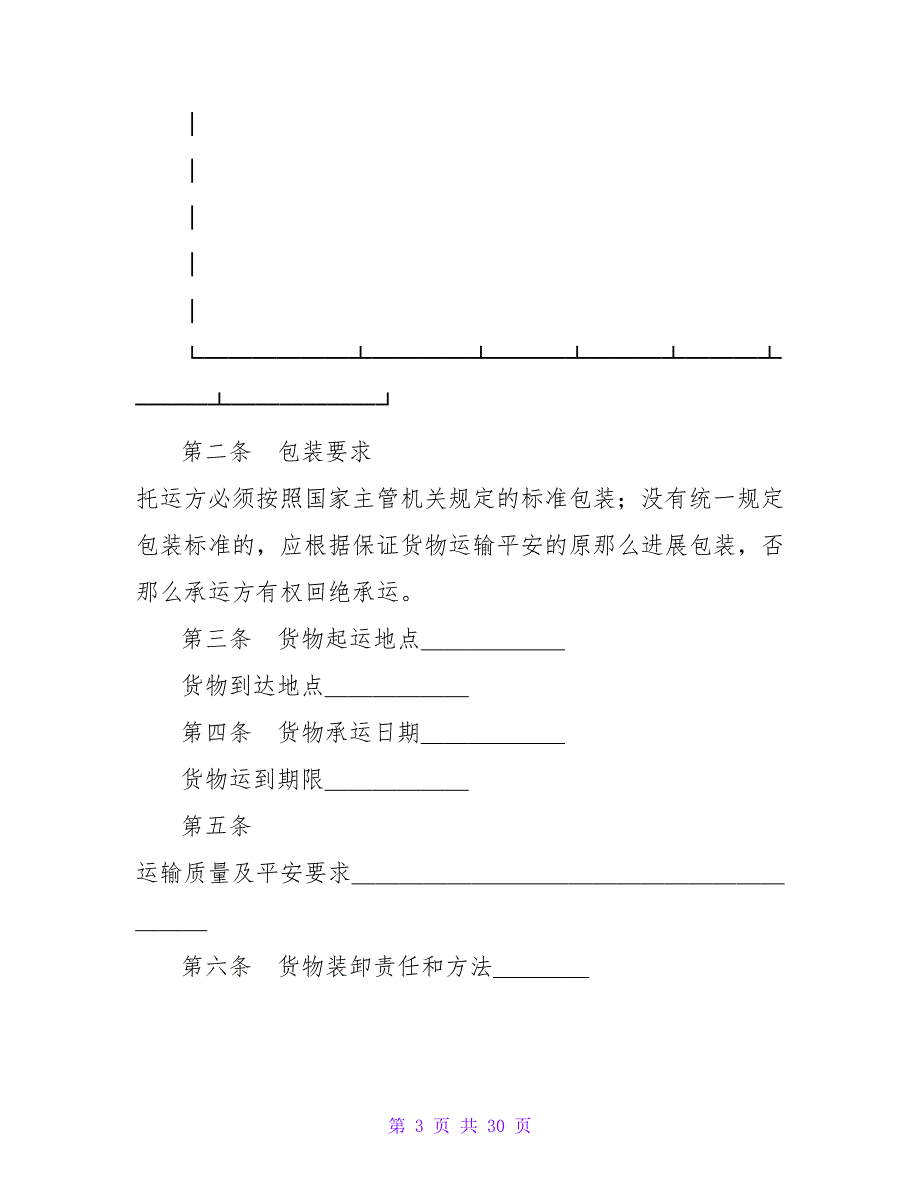 │
│
│
│
│
└──────┴────┴───┴───┴───┴
───┴──────┘
第二条　包装要求
托运方必须按照国家主管机关规定的标准包装；没有统一规定
包装标准的，应根据保证货物运输平安的原那么进展包装，否
那么承运方有权回绝承运。
第三条　货物起运地点____________
货物到达地点____________
第四条　货物承运日期____________
货物运到期限____________
第五条
运输质量及平安要求____________________________________
______
第六条　货物装卸责任和方法________
第 3 页 共 30 页